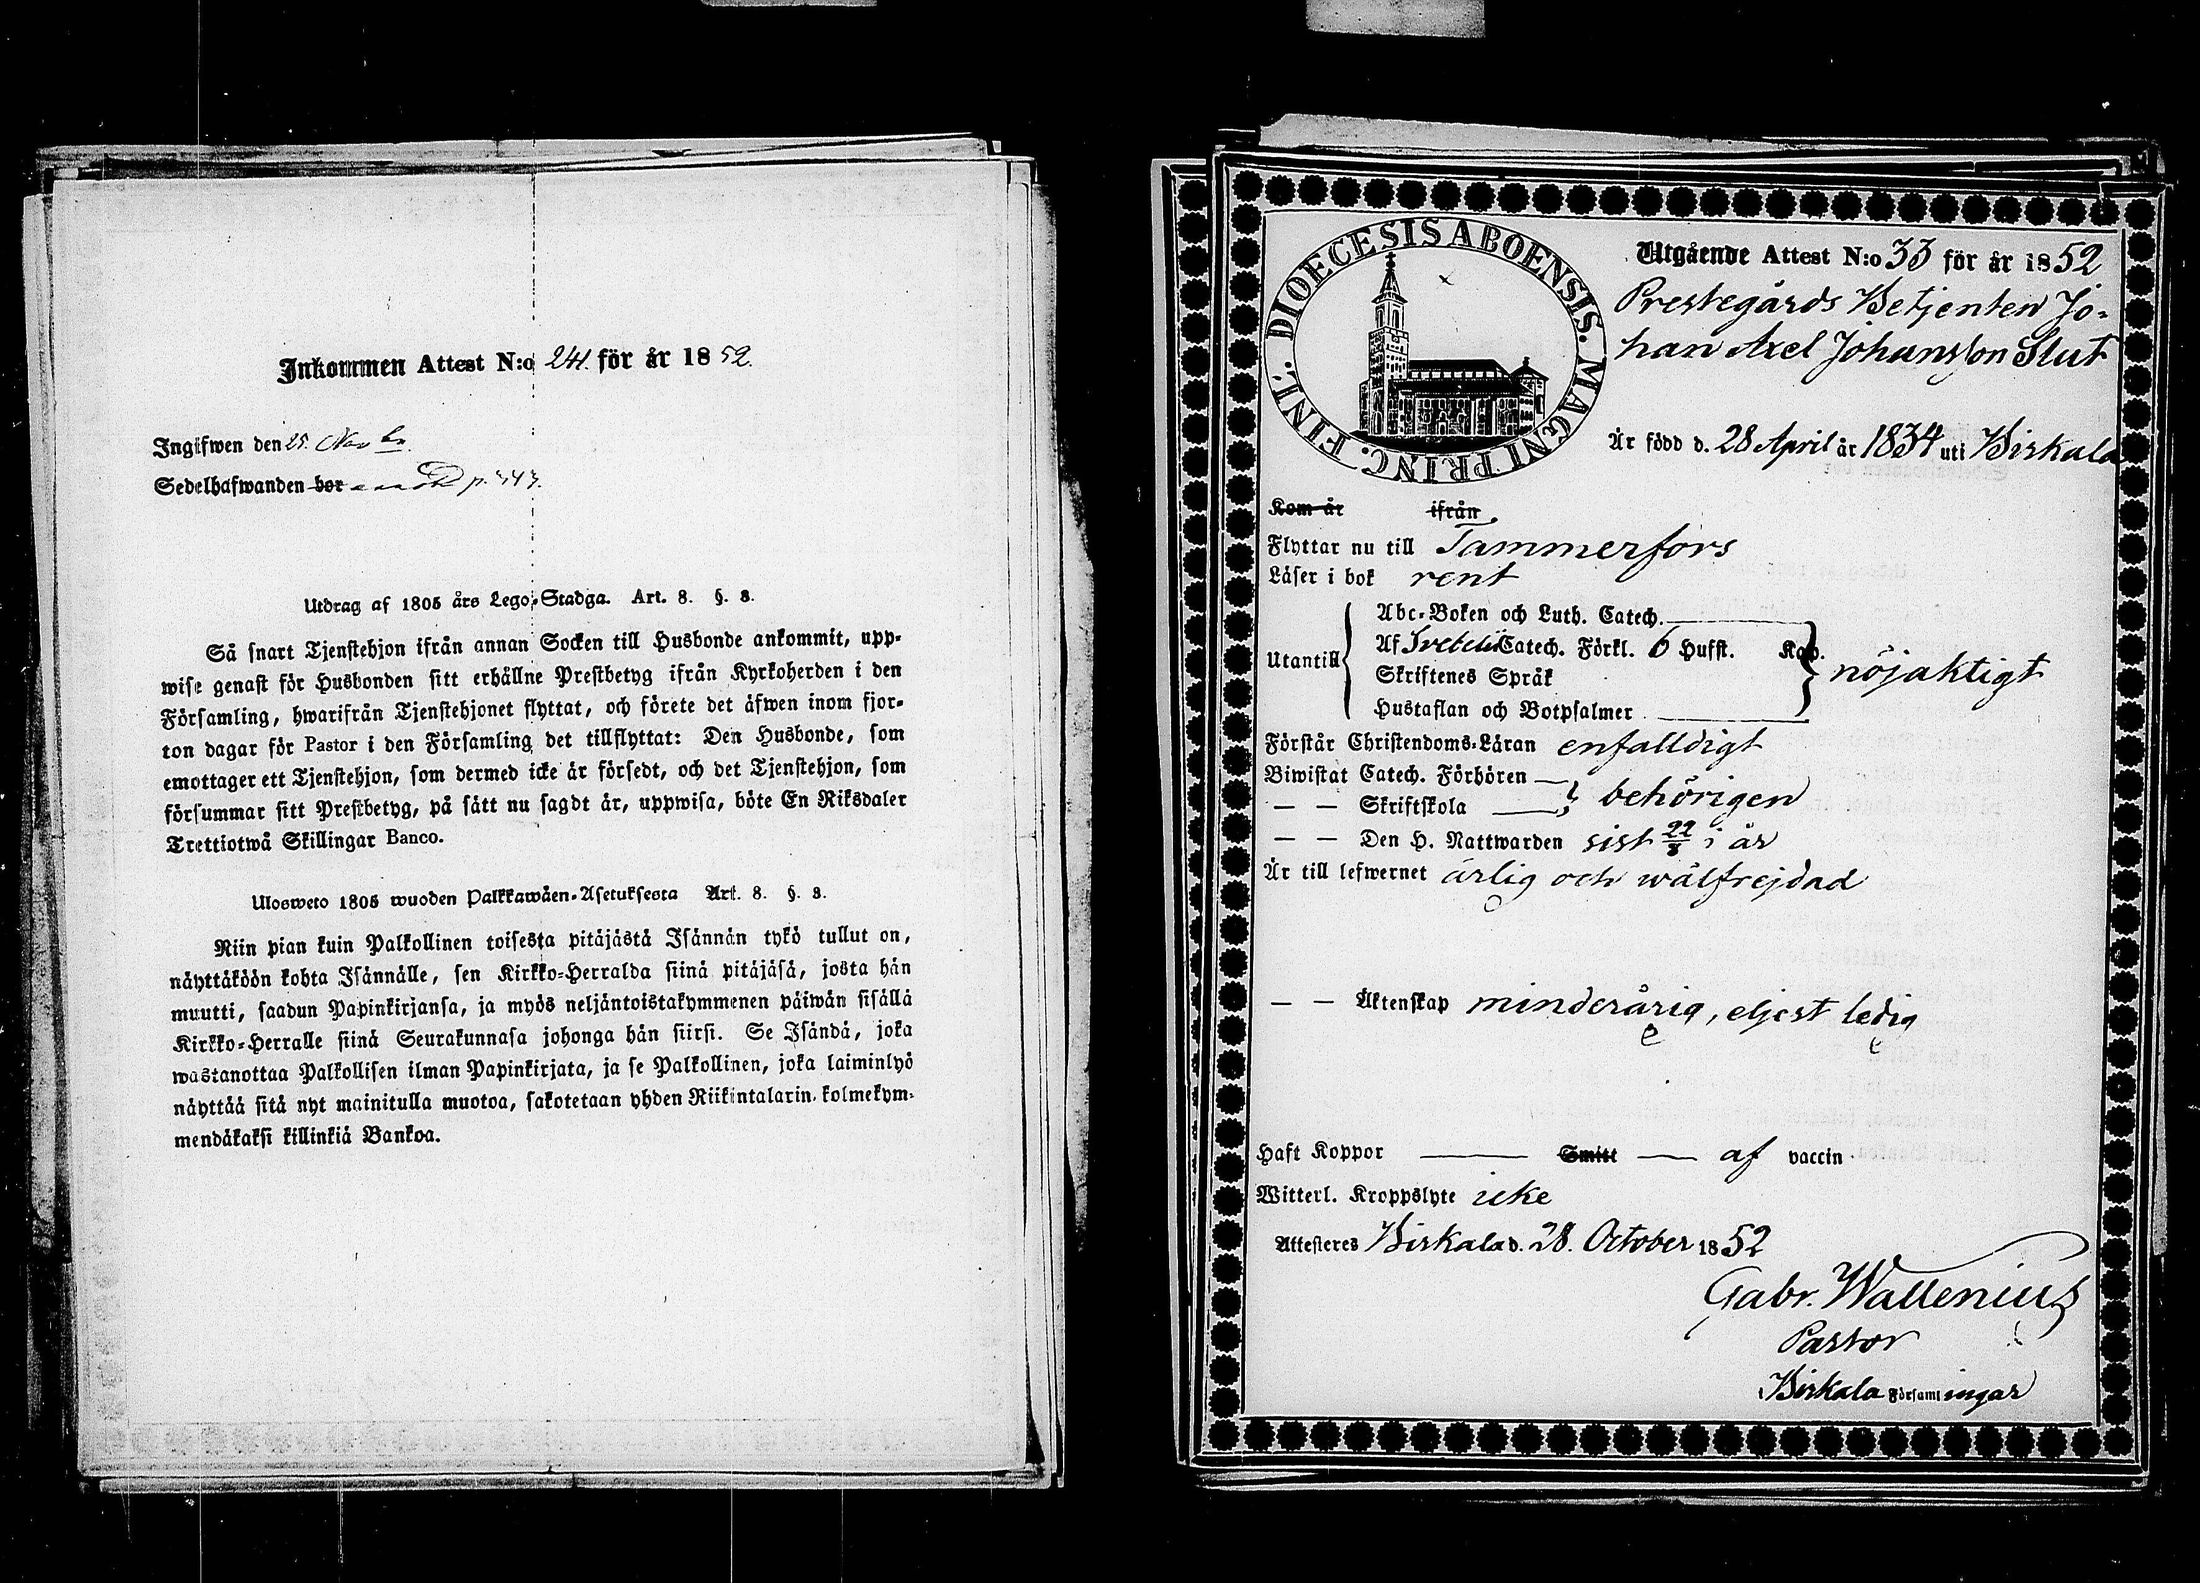 Inkommen Attest N:o 241. för år 1852.
Ingifwen den 25. Novbr.
Sedelhafwanden bor p. 343.
Utdrag af 1805 års Lego-Stadga. Art. 8. §. 8.
Så snart Tjenstehjon ifrån annan Socken till Husbonde ankommit, upp-
wise genast för Husbonden sitt erhållne Prestbetyg ifrån Kyrkoherden i den
Församling, hwarifrån Tjenstehjonet flyttat, och förete det äfwen inom fjor-
ton dagar för Pastor i den Församling det tillflyttat: Den Husbonde, som
emottager ett Tjenstehjon, som dermed icke är försedt, och det Tjenstehjon, som
försummar sitt Prestbetyg, på sätt nu sagdt är, uppwisa, böte En Riksdaler
Trettiotwå Skillingar Banco.
Ulosweto 1805 wuoden Palkkawäen-Asetuksesta Art. 8. §. 8.
Niin pian kuin Palkollinen toisesta pitäjästä Isännän tykö tullut on,
näyttäköön kohta Isännälle, sen Kirkko-Herralda siinä pitäjäsä, josta hän
muutti, saadun Papinkirjansa, ja myös neljäntoistakymmenen päiwän sisällä
Kirkko-Herralle siinä Seurakunnasa johonga hän siirsi. Se Isändä, joka
wastanottaa Palkollisen ilman Papinkirjata, ja se Palkollinen, joka laiminlyö
näyttää sitä nyt mainitulla muotoa, sakotetaan yhden Riikintalarin kolmekym-
mendäkaksi killinkiä Bankoa.
DIOECESIS ABOENSIS. MAGNI PRINC. FINL.
Utgående Attest N:o 33 för år 1852
Prestegårds Betjenten Jo-
han Axel Johansson Slut
Är född d. 28 April år 1834 uti Birkala
Kom år ifrån
Flyttar nu till Tammerfors
Läser i bok rent
Abc-Boken och Luth. Catech.
Utantill Af Svebelii Catech. Förkl. 6 Hufst. Kap. nöjaktigt
Skriftenes Språk
Hustaflan och Botpsalmer
Förstår Christendoms-Läran enfalldigt
Biwistat Catech. Förhören
— — Skriftskola behörigen
— — Den H. Nattwarden sist 22/8 i år
Är till lefwernet ärlig och wälfrejdad
— — Äktenskap minderårig, eljest ledig
Haft Koppor — Smitt — af vaccin
Witterl. Kroppslyte icke
Attesteres Birkala d. 28. October 1852
Gabr. Wallenius
Pastor
i Birkala Församlingar